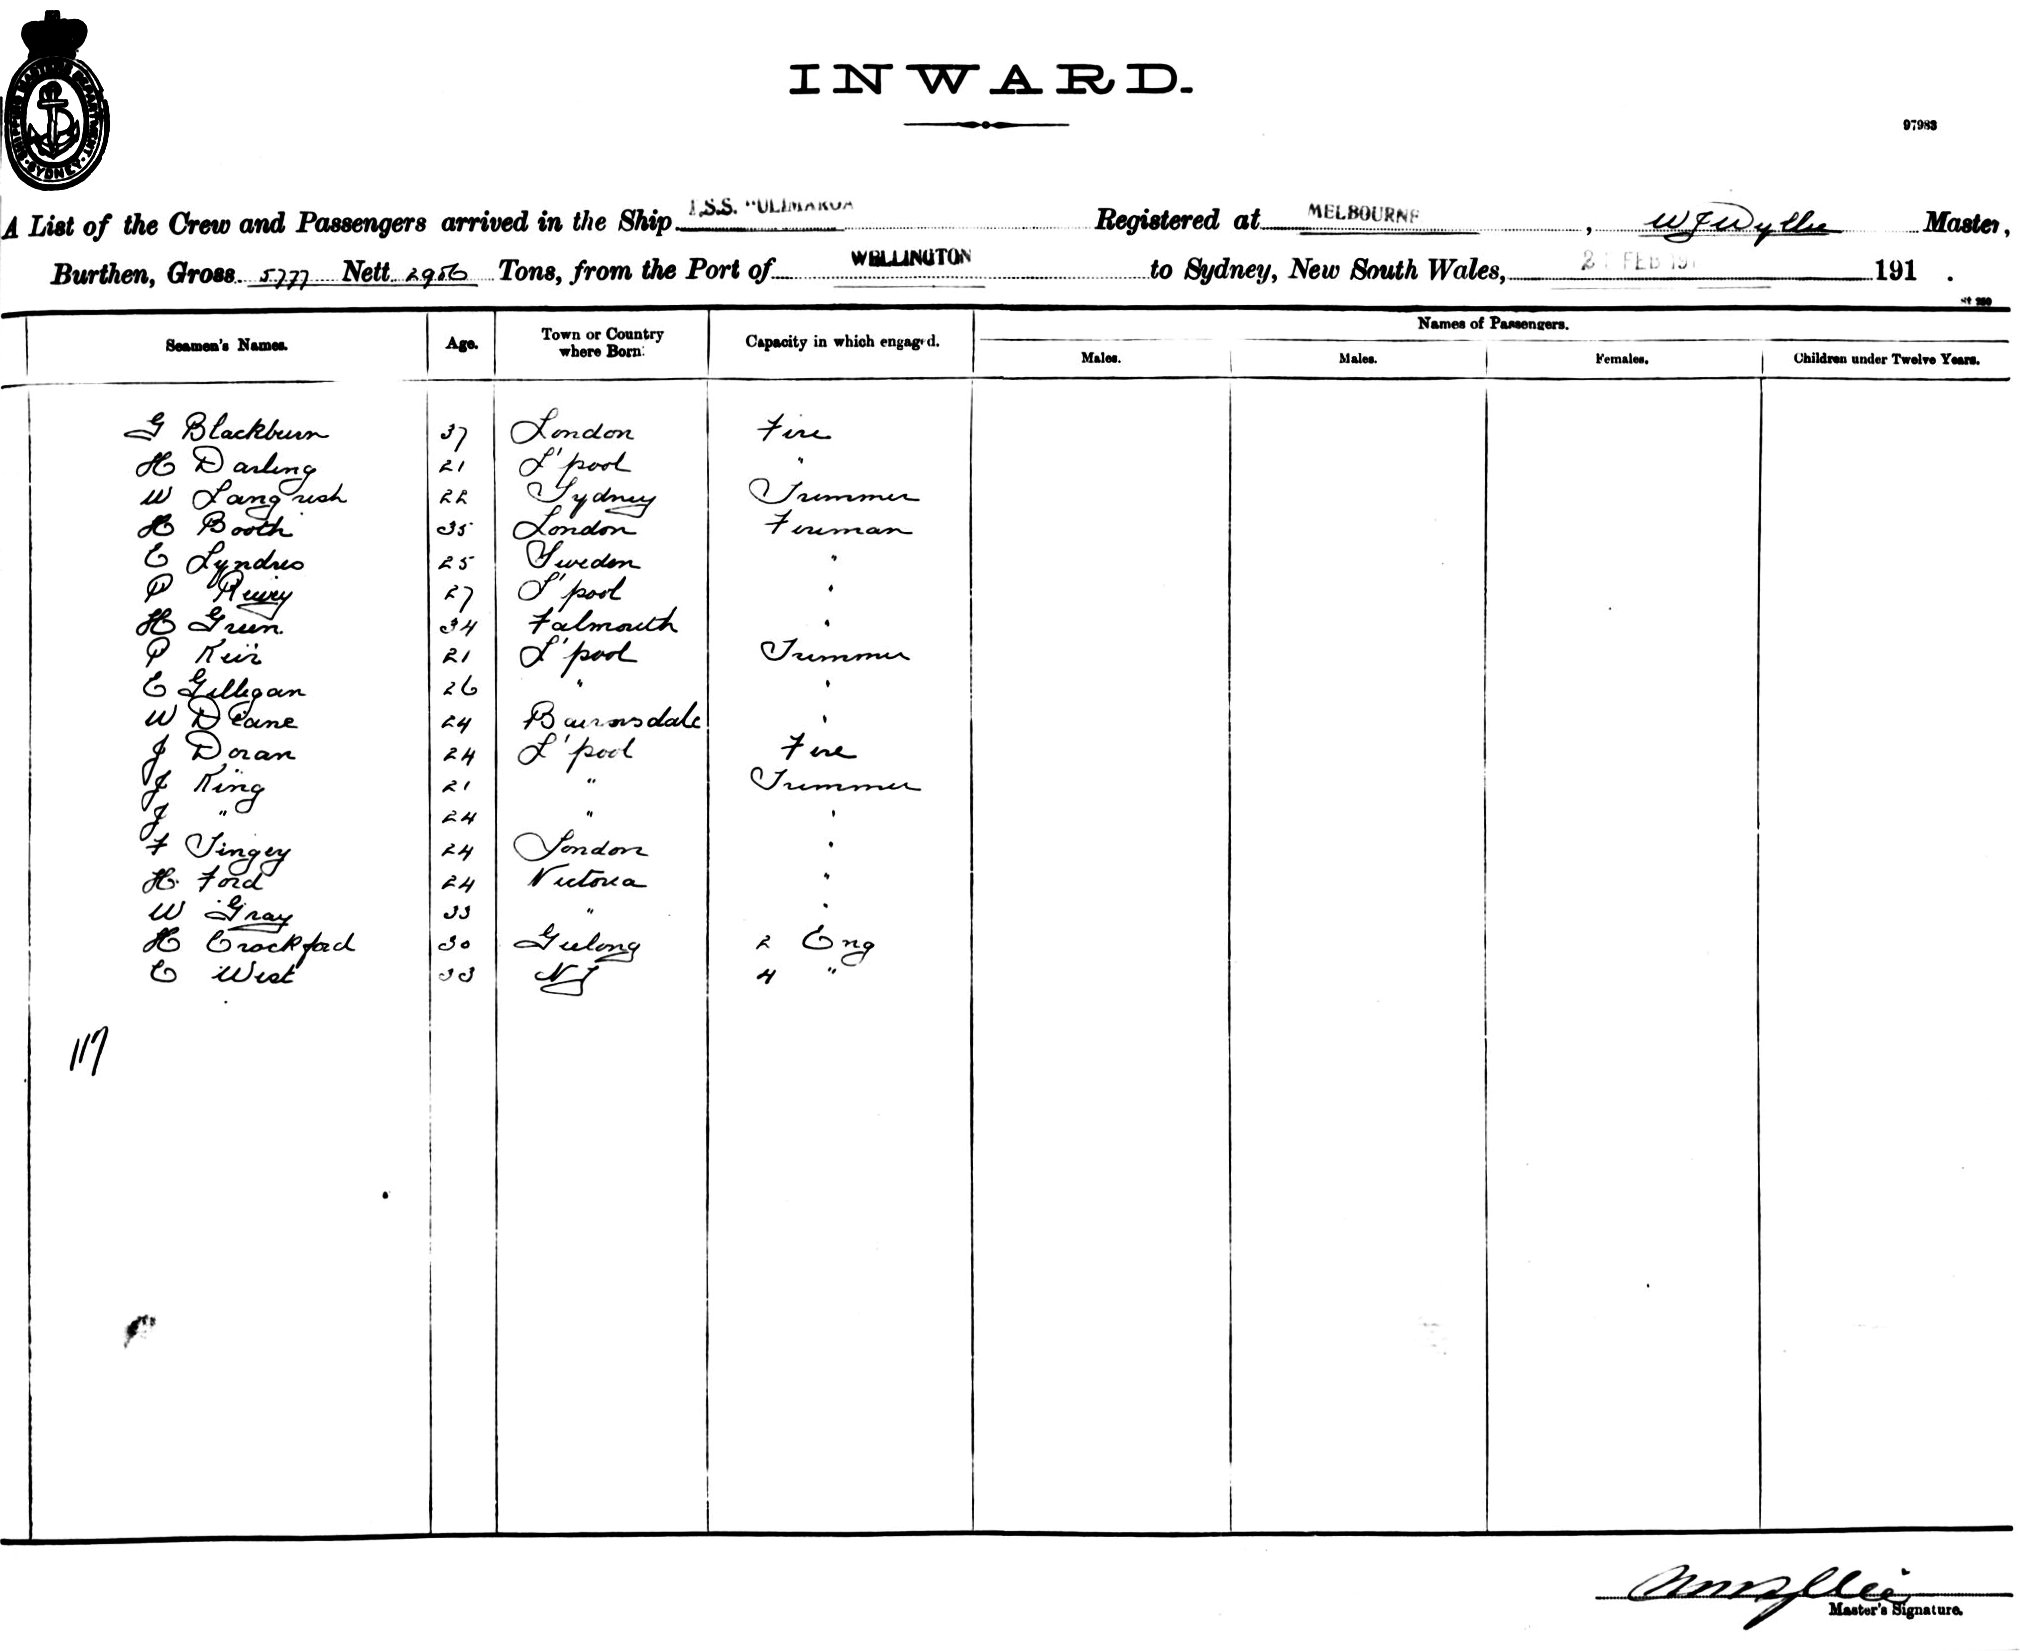 SHIPPING MASTERS DEPARTMENT SYDNEY
INWARD.
97983
A List of the Crew and Passengers arrived in the Ship T.S.S. "ULIMAROA Registered at MELBOURNE, W J Wyllie Master,
Burthen, Gross 5777 Nett 2956 Tons, from the Port of WELLINGTON to Sydney, New South Wales, FEB 191 191 .
Names of Passengers.
Seamen's Names. Age. Town or Country where Born. Capacity in which engaged. Males. Males. Females. Children under Twelve Years.
G Blackburn 37 London Fire
H Darling 21 L'pool "
W Langrish 22 Sydney Trimmer
H Booth 35 London Fireman
E Lyndres 25 Sweden "
P 27 L'pool "
H Green 34 Falmouth "
P Keir 21 L'pool Trimmer
E Gilligan 26 " "
W Deane 24 Bairnsdale "
J Doran 24 L'pool Fire
J King 21 " Trimmer
J " 24 " "
F Tingey 24 London "
H. Ford 24 Victoria "
W Gray 33 " "
H Crockford 30 Geelong 2 Eng
E West 33 NZ 4 "
117
Master's Signature.